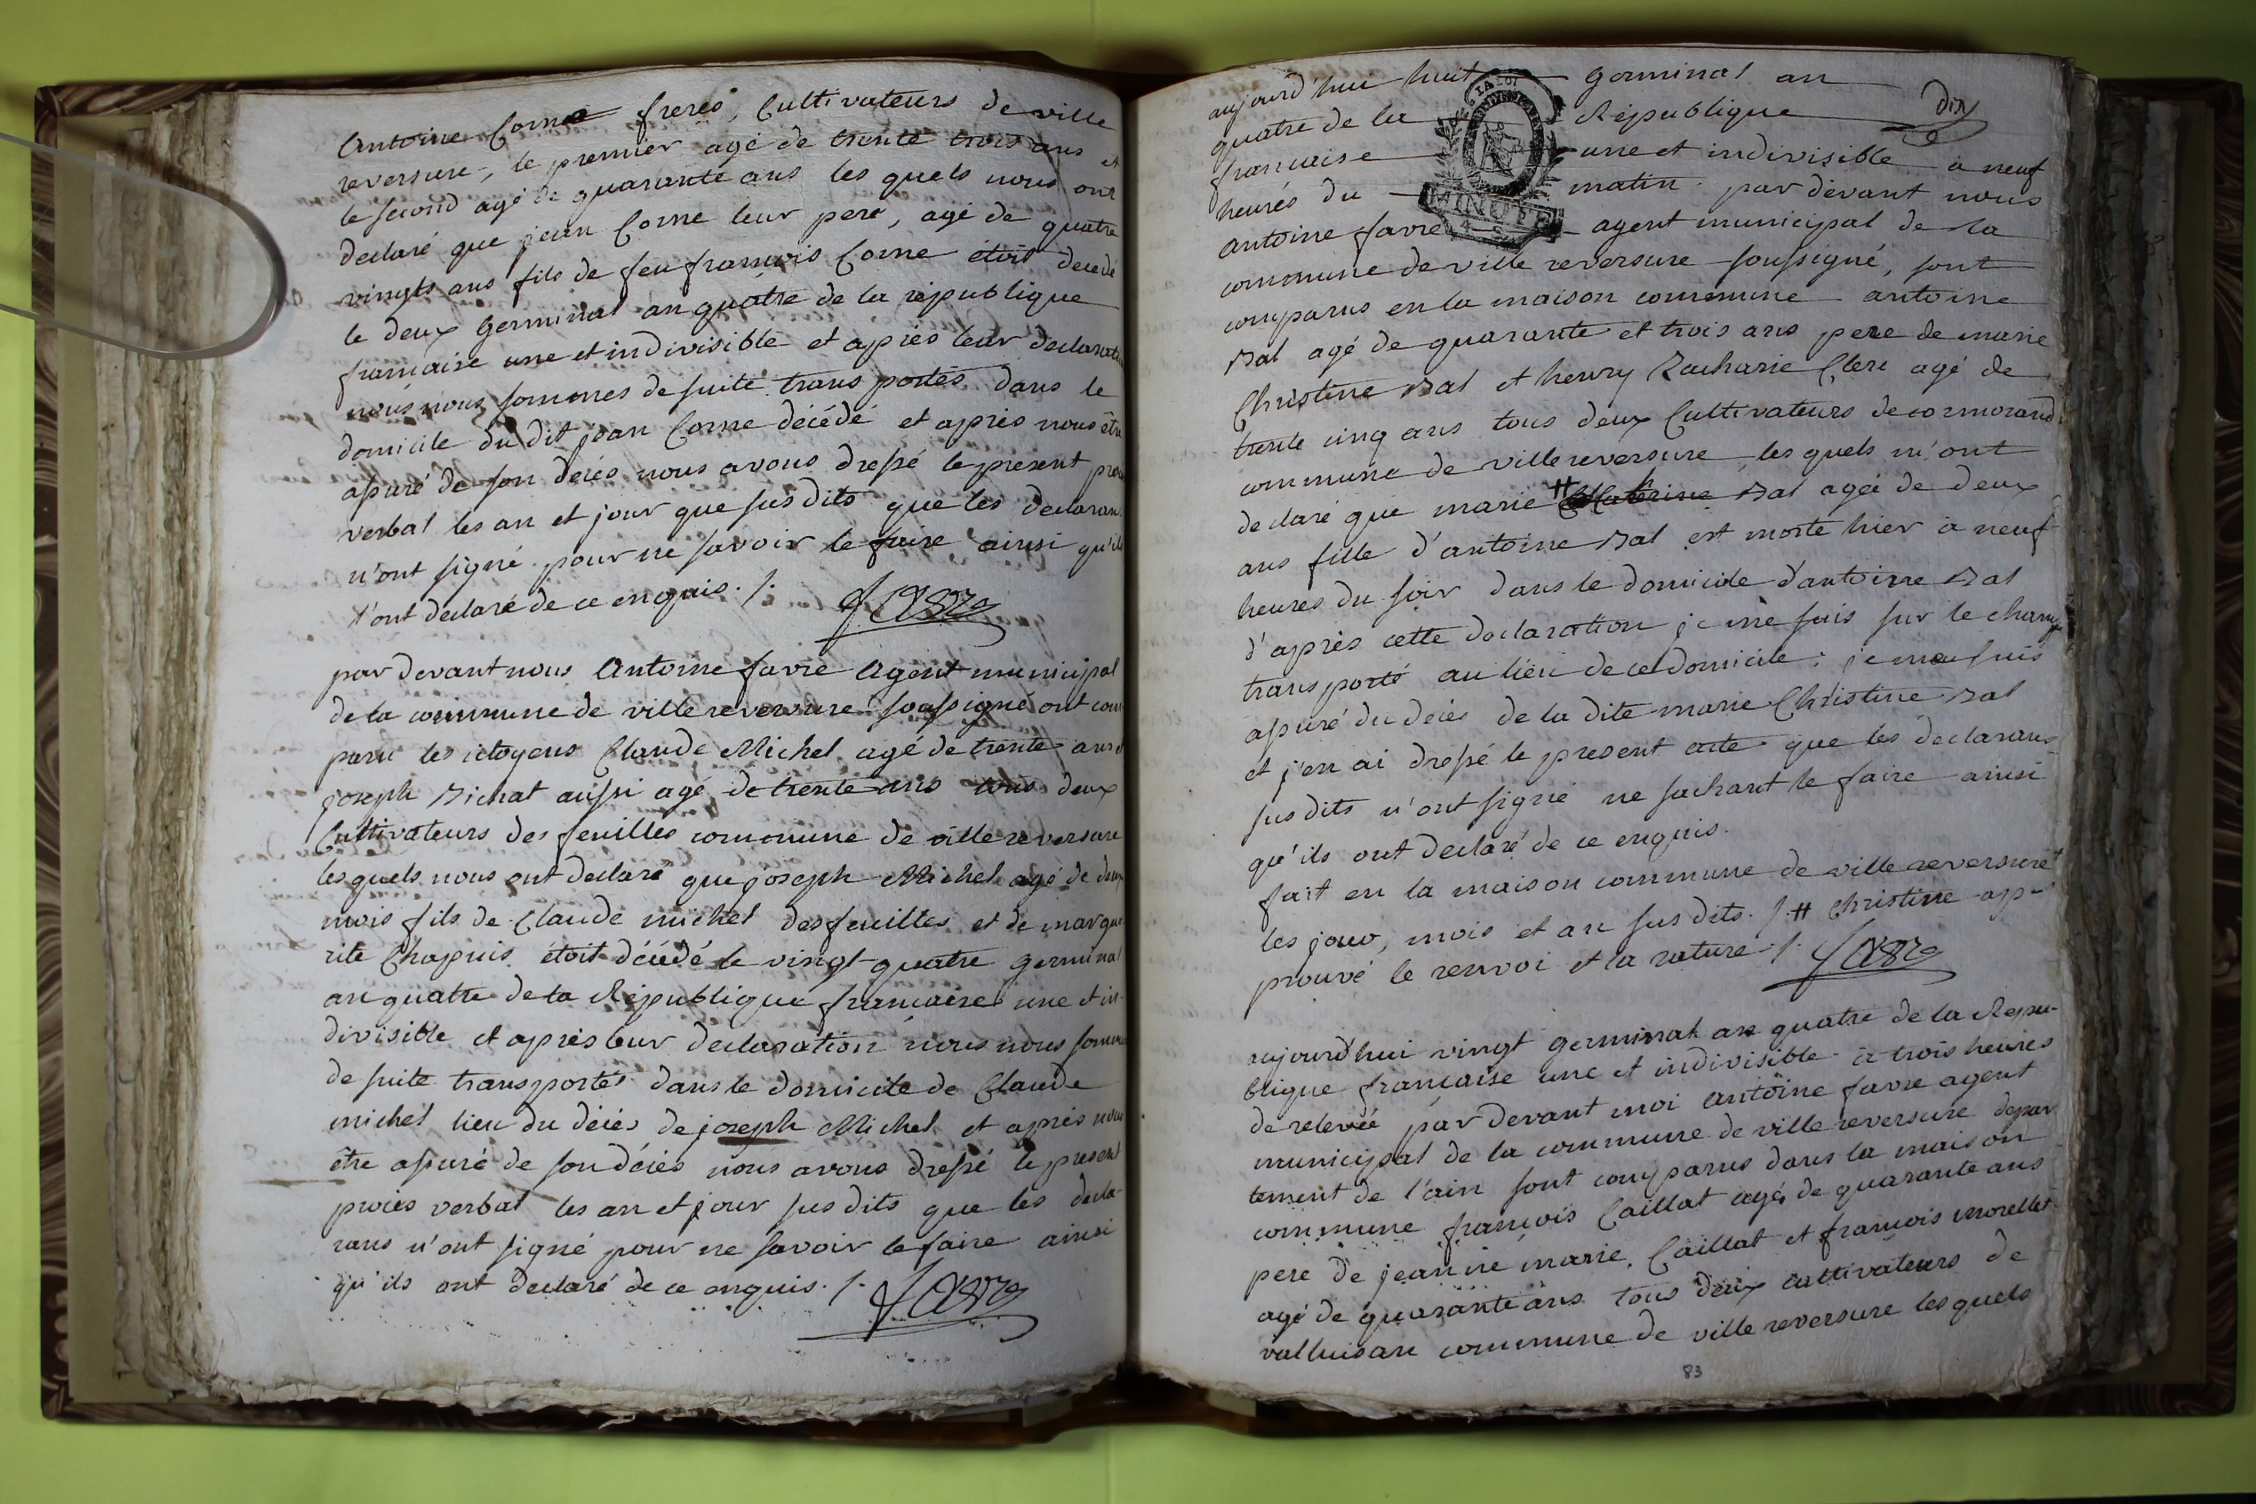 Antoine Corne freres, Cultivateurs de ville
reversure, le premier agé de trente trois ans et
le second agé de quarante ans les quels nous ont
declaré que jean Corne leur pere, agé de quatre
vingts ans fils de feu francois Corne étoit decedé
le deux Germinal an quatre de la république
francaise une et indivisible et après leur declaration
nous nous sommes de suite transportés dans le
domicile du dit jean Corne décédé et après nous être
assuré de son décès nous avons dressé le present procès
verbal les an et jour que susdits que les declarans
n'ont signé pour ne savoir le faire ainsi qu'ils
l'ont declaré de ce enquis ./.
favre
par devant nous Antoine favre Agent municipal
de la commune de ville reversure soussigné ont com
paru les citoyens Claude Michel agé de trente ans et
joseph Dichat aussi agé de trente ans tous deux
Cultivateurs des feuilles commune de ville reversure
les quels nous ont declaré que joseph Michel agé de deux
mois fils de Claude michel des feuilles et de margue
rite Chapuis étoit décédé le vingt quatre germinal
an quatre de la République francaise une et in-
divisible et après leur declaration nous nous sommes
de suite transportés dans le domicile de Claude
michel lieu du décès de joseph Michel et après nous
être assuré de son décès nous avons dressé le present
procès verbal les an et jour susdits que les decla-
rans n'ont signé pour ne savoir le faire ainsi
qu'ils ont declaré de ce enquis ./. favre
aujourd'hui huit Germinal an
quatre de la République dix
francaise une et indivisible a neuf
heures du matin par devant nous
LA LOI
MINUTE
antoine favre agent municipal de la
commune de ville reversure soussigné, sont
comparus en la maison commune antoine
Dal agé de quarante et trois ans pere de marie
Christine Dal et henry Zacharie Clerc agé de
trente cinq ans tous deux Cultivateurs de cormorand
commune de ville reversure les quels m'ont
declaré que marie # Dal agée de deux
ans fille d'antoine Dal est morte hier a neuf
heures du soir dans le domicile d'antoine Dal
d'après cette declaration je me suis sur le champ
transporté au lieu de ce domicile ; je me suis
assuré du décès de la dite marie Christine Dal
et j'en ai dressé le present acte que les declarans
susdits n'ont signé ne sachant le faire ainsi
qu'ils ont declaré de ce enquis.
fait en la maison commune de ville reversure
les jour, mois et an susdits ./. # Christine ap-
prouvé le renvoi et la rature ./. favre
aujourd'hui vingt germinal an quatre de la Repu-
blique francaise une et indivisible à trois heures
de relevée par devant moi Antoine favre agent
municipal de la commune de ville reversure depar
tement de l'ain sont comparus dans la maison
commune francois Caillat agé de quarante ans
pere de jeanne marie Caillat et francois morellet
agé de quarante ans tous deux cultivateurs de
valluisan commune de ville reversure les quels
83